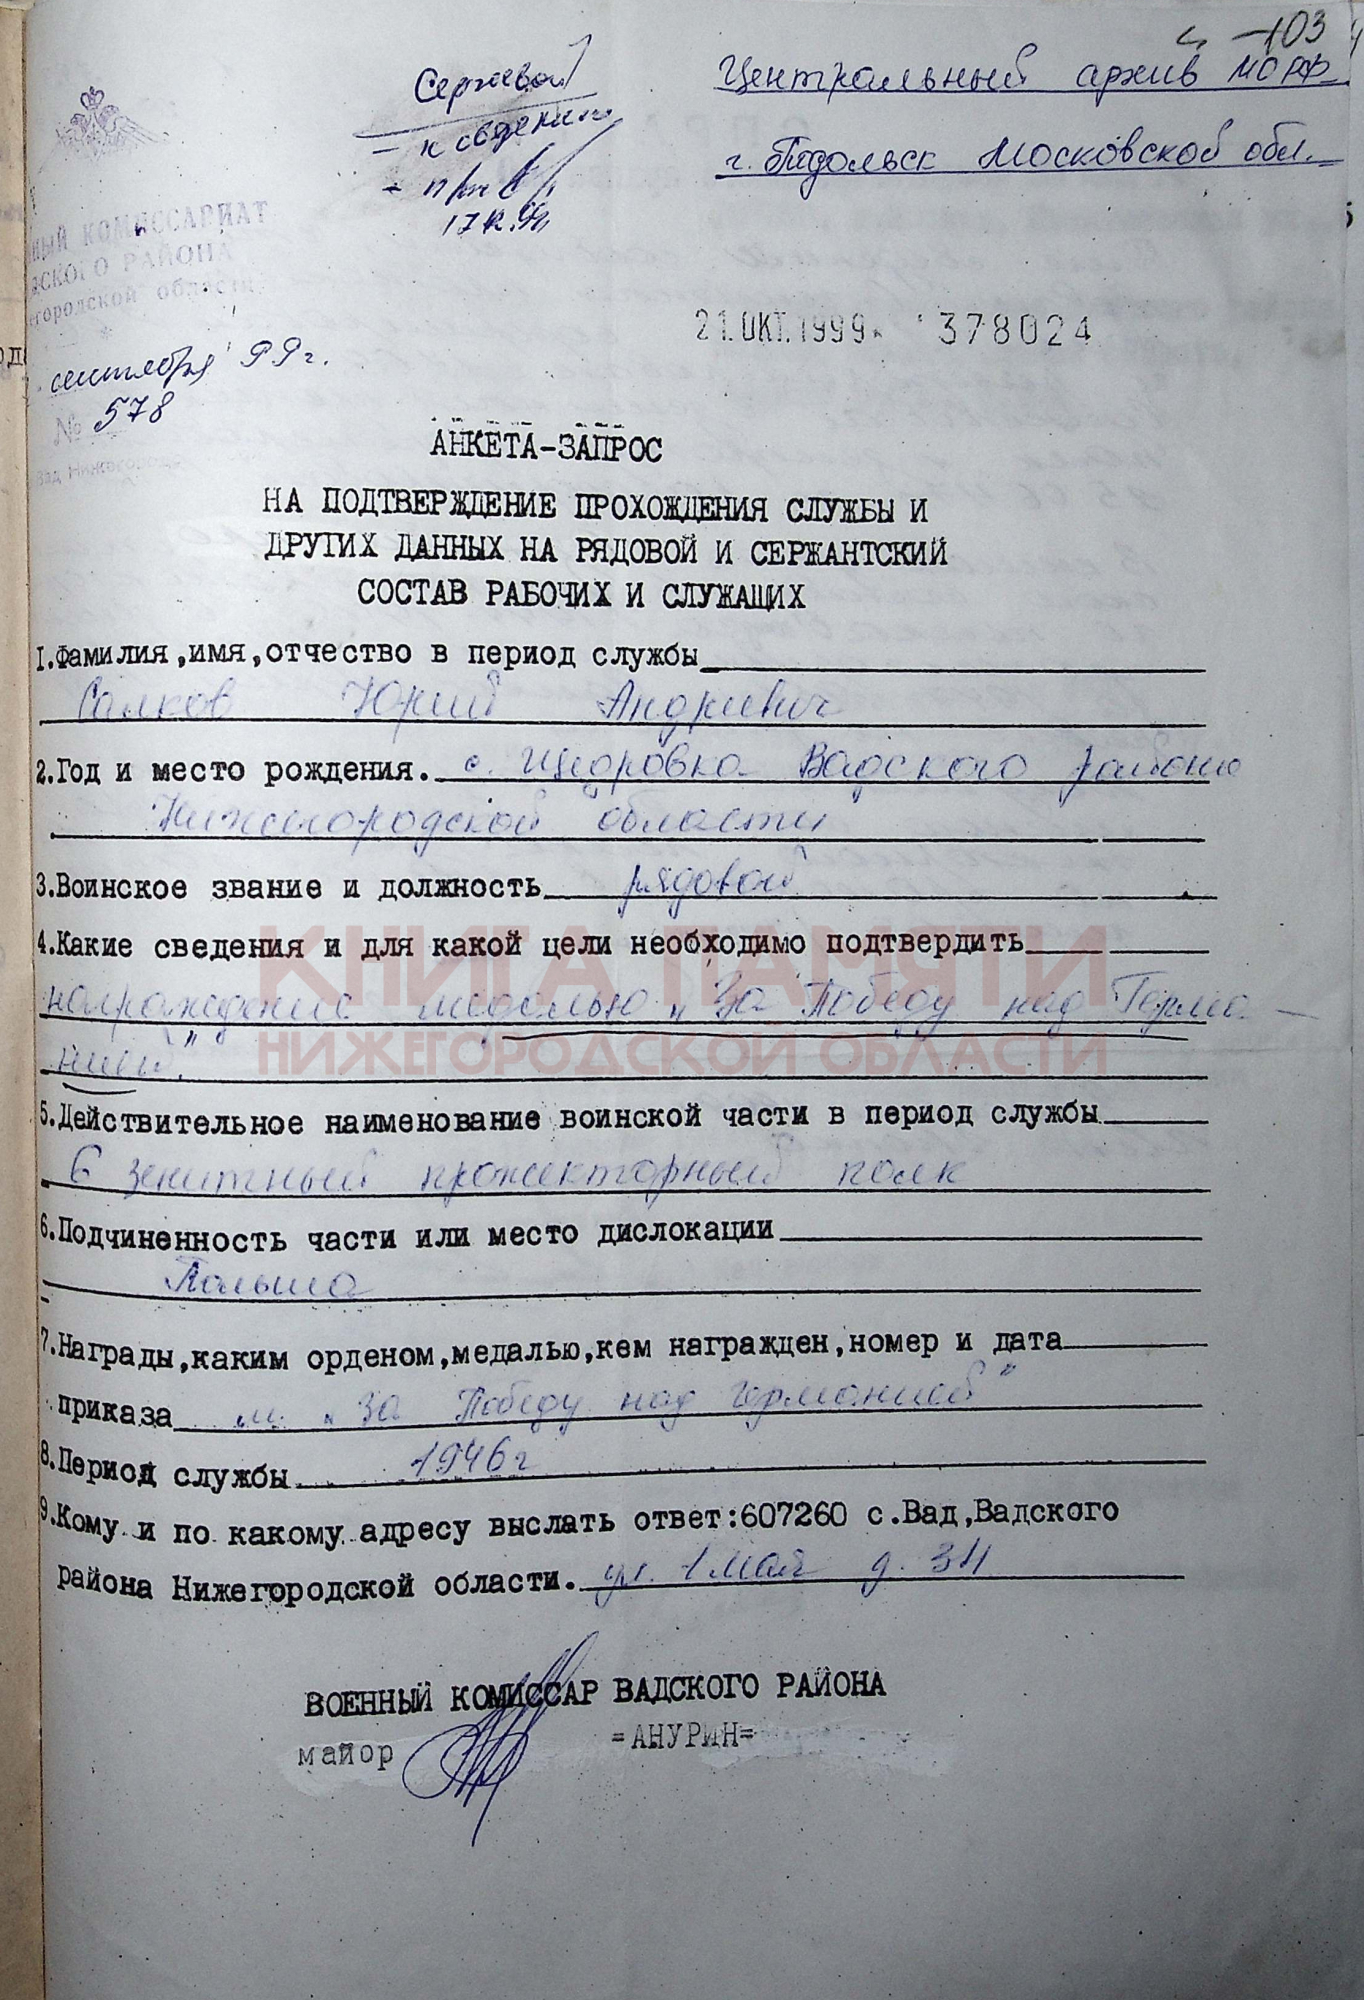 103
Центральный архив МО РФ
г. Подольск Московской обл.
Сергеевой
- к сведению
ВОЕННЫЙ КОМИССАРИАТ
ВАДСКОГО РАЙОНА
Нижегородской области
сентября 99 г.
№ 578
21.ОКТ.1999 378024
АНКЕТА-ЗАПРОС
НА ПОДТВЕРЖДЕНИЕ ПРОХОЖДЕНИЯ СЛУЖБЫ И
ДРУГИХ ДАННЫХ НА РЯДОВОЙ И СЕРЖАНТСКИЙ
СОСТАВ РАБОЧИХ И СЛУЖАЩИХ
1.Фамилия,имя,отчество в период службы
Салков Юрий Андриевич
2.Год и место рождения. с. Щедровка Вадского района
Нижегородской области
3.Воинское звание и должность рядовой
4.Какие сведения и для какой цели необходимо подтвердить
награждение медалью „За Победу над Герма-
нией."
КНИГА ПАМЯТИ
НИЖЕГОРОДСКОЙ ОБЛАСТИ
5.Действительное наименование воинской части в период службы
6 зенитный прожекторный полк
6.Подчиненность части или место дислокации
Польша
7.Награды,каким орденом,медалью,кем награжден,номер и дата
приказа м. „За Победу над Германией"
8.Период службы 1946г
9.Кому и по какому адресу выслать ответ:607260 с.Вад,Вадского
района Нижегородской области. ул. 1 Мая д. 34
ВОЕННЫЙ КОМИССАР ВАДСКОГО РАЙОНА
майор =АНУРИН=